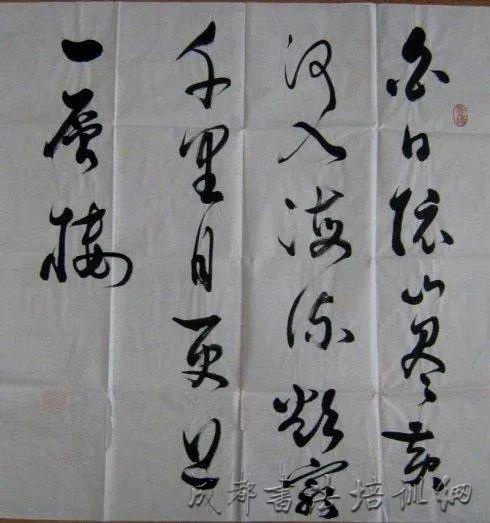 白日依山尽黄
河入海流欲穷
千里目更上
一层楼
成都书法培训网